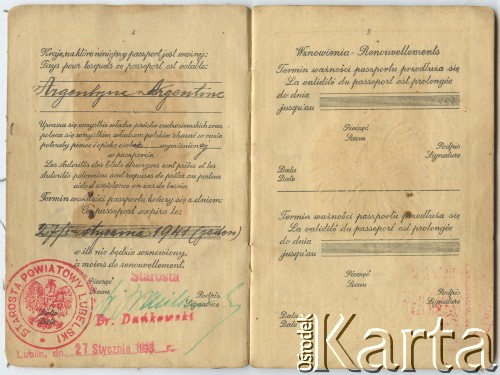 4
Kraje, na które niniejszy paszport jest ważny:
Pays pour lesquels ce passeport est valable:
Argentyna Argentine
Uprasza się wszystkie władze państw cudzoziemskich oraz
poleca się wszystkim władzom polskim okazać w razie
potrzeby pomoc i opiekę osobie wymienionej
w paszporcie.
Les Autorités des Etats étrangers sont priées et les
Autorités polonaises sont requises de prêter au porteur
aide et assistance en cas de besoin.
Termin ważności paszportu kończy się z dniem:
Ce passeport expire le:
stycznia 1941 (jeden)
o ile nie będzie wznowiony
à moins de renouvellement.
Pieczęć
Sceau
Starosta
Podpis
Signature
Dr. Dańkowski
STAROSTA POWIATOWY LUBELSKI
Data
Date
Lublin, dn. 27 Stycznia 1938 r.
5
Wznowienia - Renouvellements
Termin ważności paszportu przedłuża się
La validité du passeport est prolongée
do dnia
jusqu'au
Pieczęć
Sceau
Podpis
Signature
Data
Date
Termin ważności paszportu przedłuża się
La validité du passeport est prolongée
do dnia
jusqu'au
Pieczęć
Sceau
Podpis
Signature
Data
Date
Ośrodek
Karta